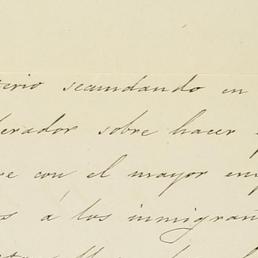 terio secundando en
erador sobre hacer
re con el mayor em
s á los inmigran